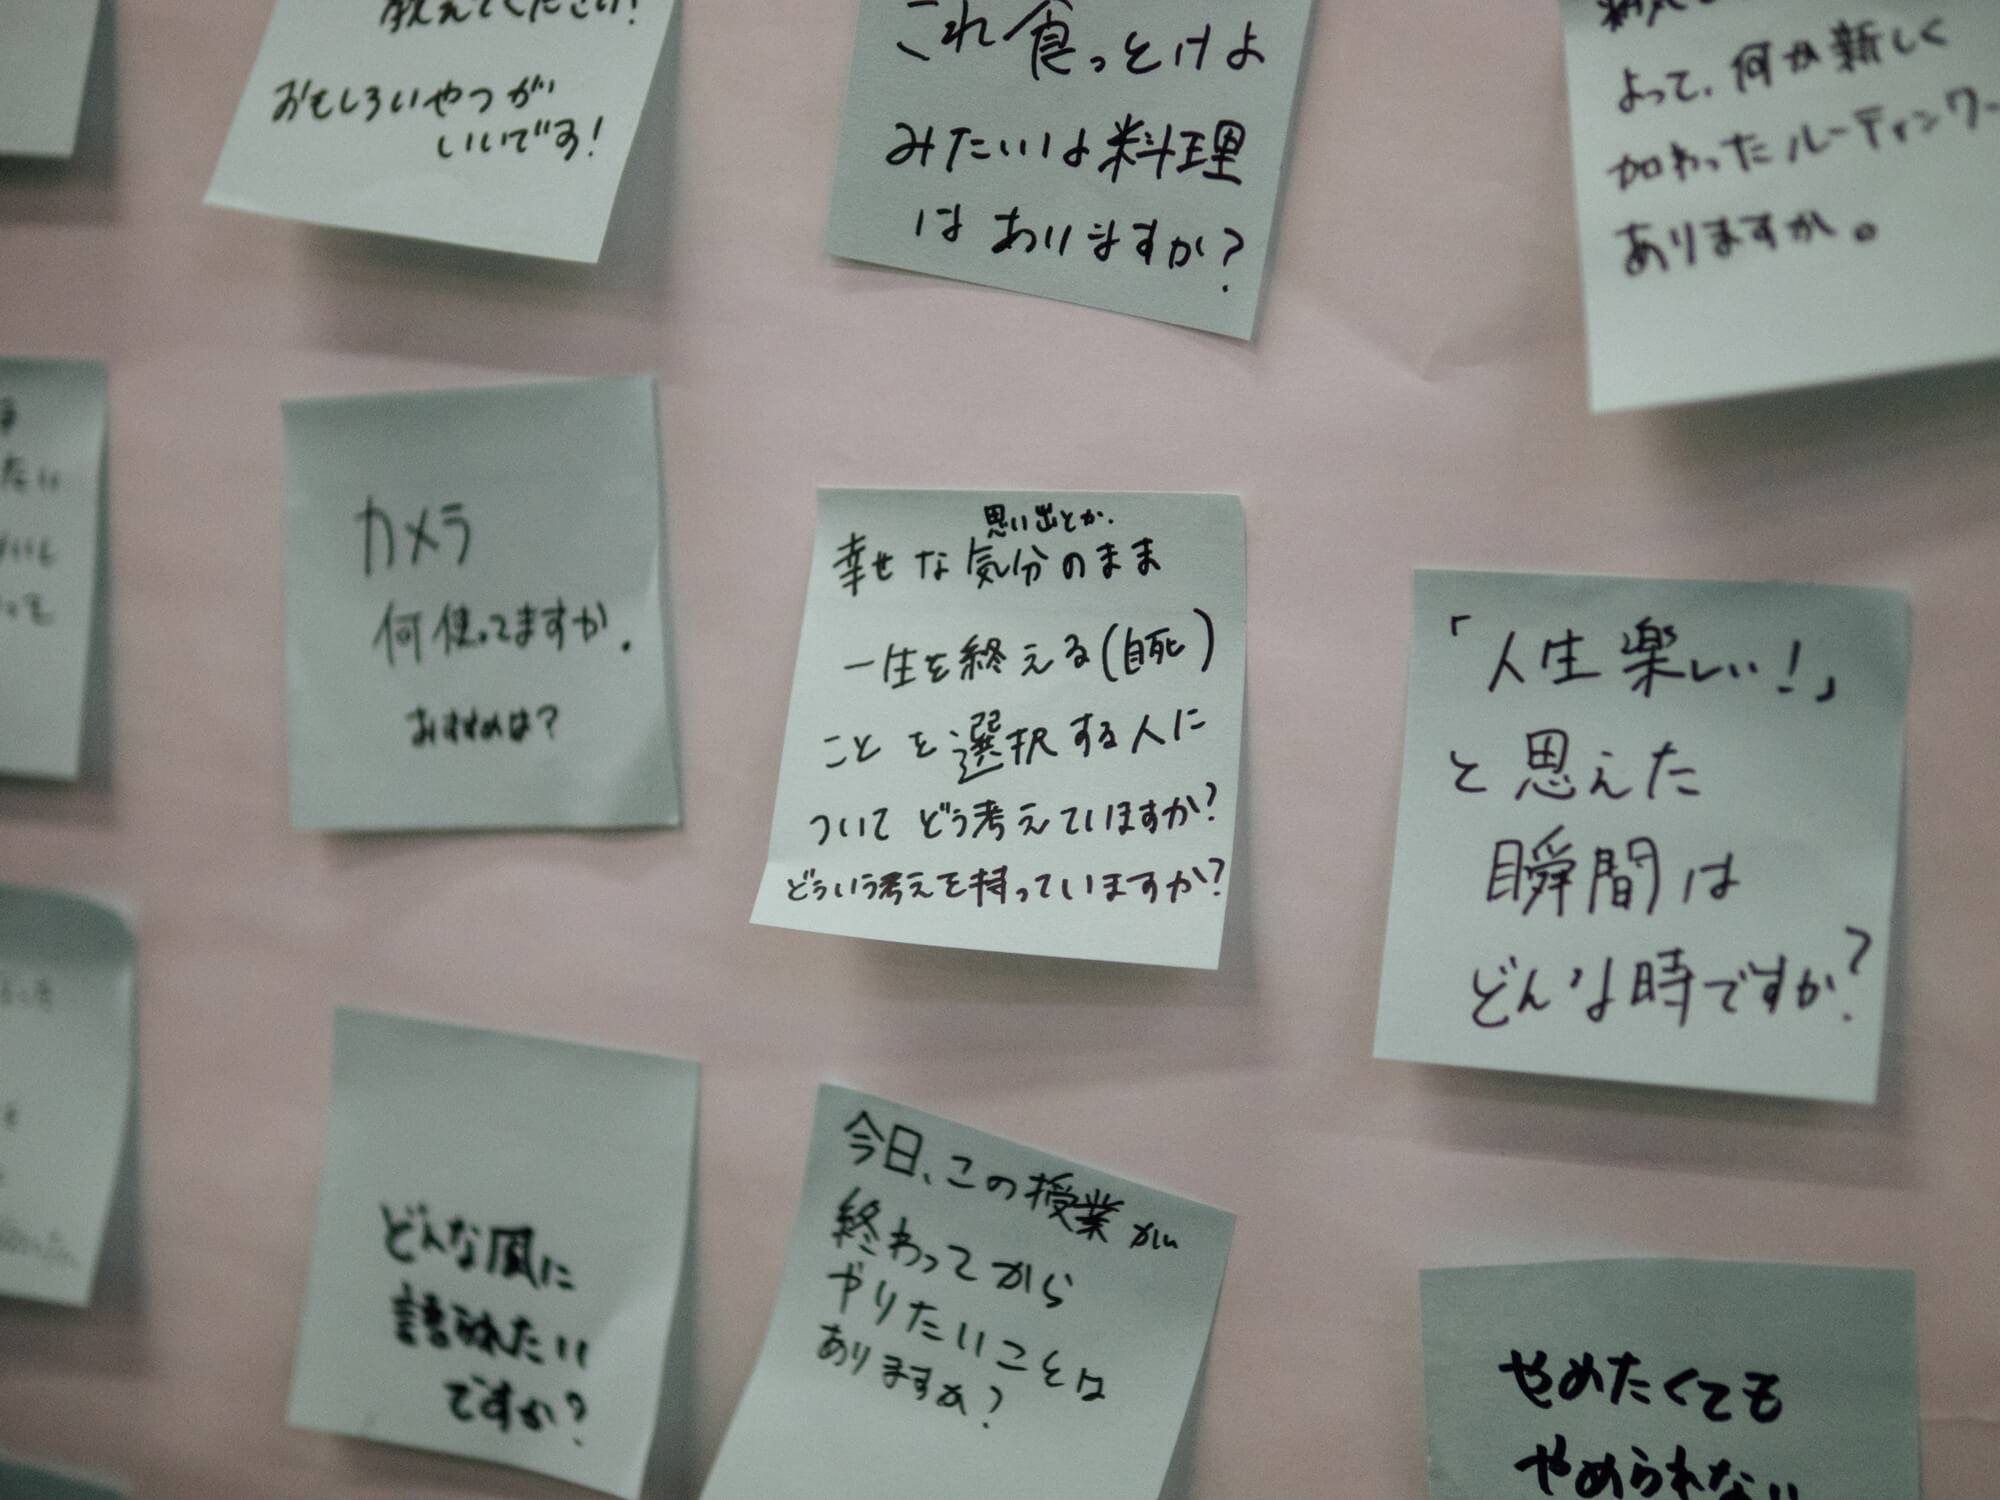 教えてください!
おもしろいやつが
いいです!
これ食っとけよ
みたいな料理
はありますか?
よって、何か新しく
加わったルーティンワー
ありますか。
たい
カメラ
何使ってますか.
おすすめは?
思い出とか.
幸せな気分のまま
一生を終える(自死)
ことを選択する人に
ついてどう考えていますか?
どういう考えを持っていますか?
「人生楽しい!」
と思えた
瞬間は
どんな時ですか?
どんな風に
誘われたい
ですか?
今日、この授業が
終わってから
やりたいことは
ありますか?
やめたくても
やめられない